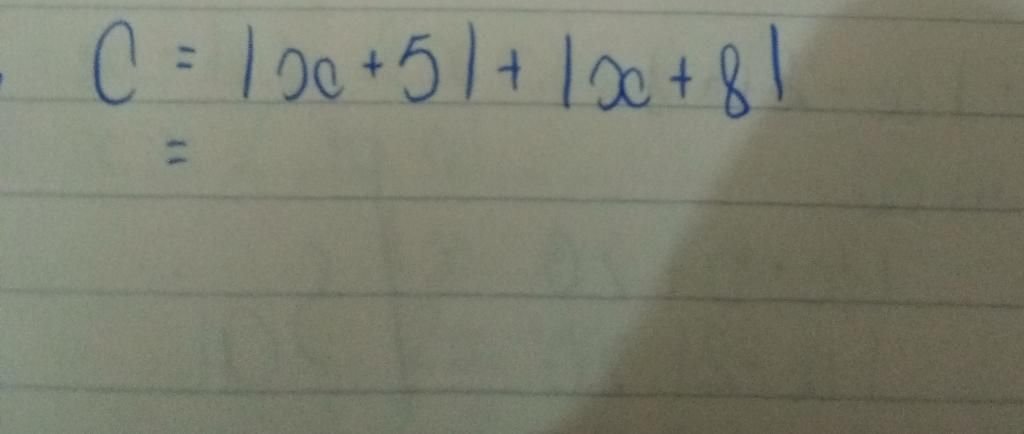 C = |x + 5| + |x + 8|
=